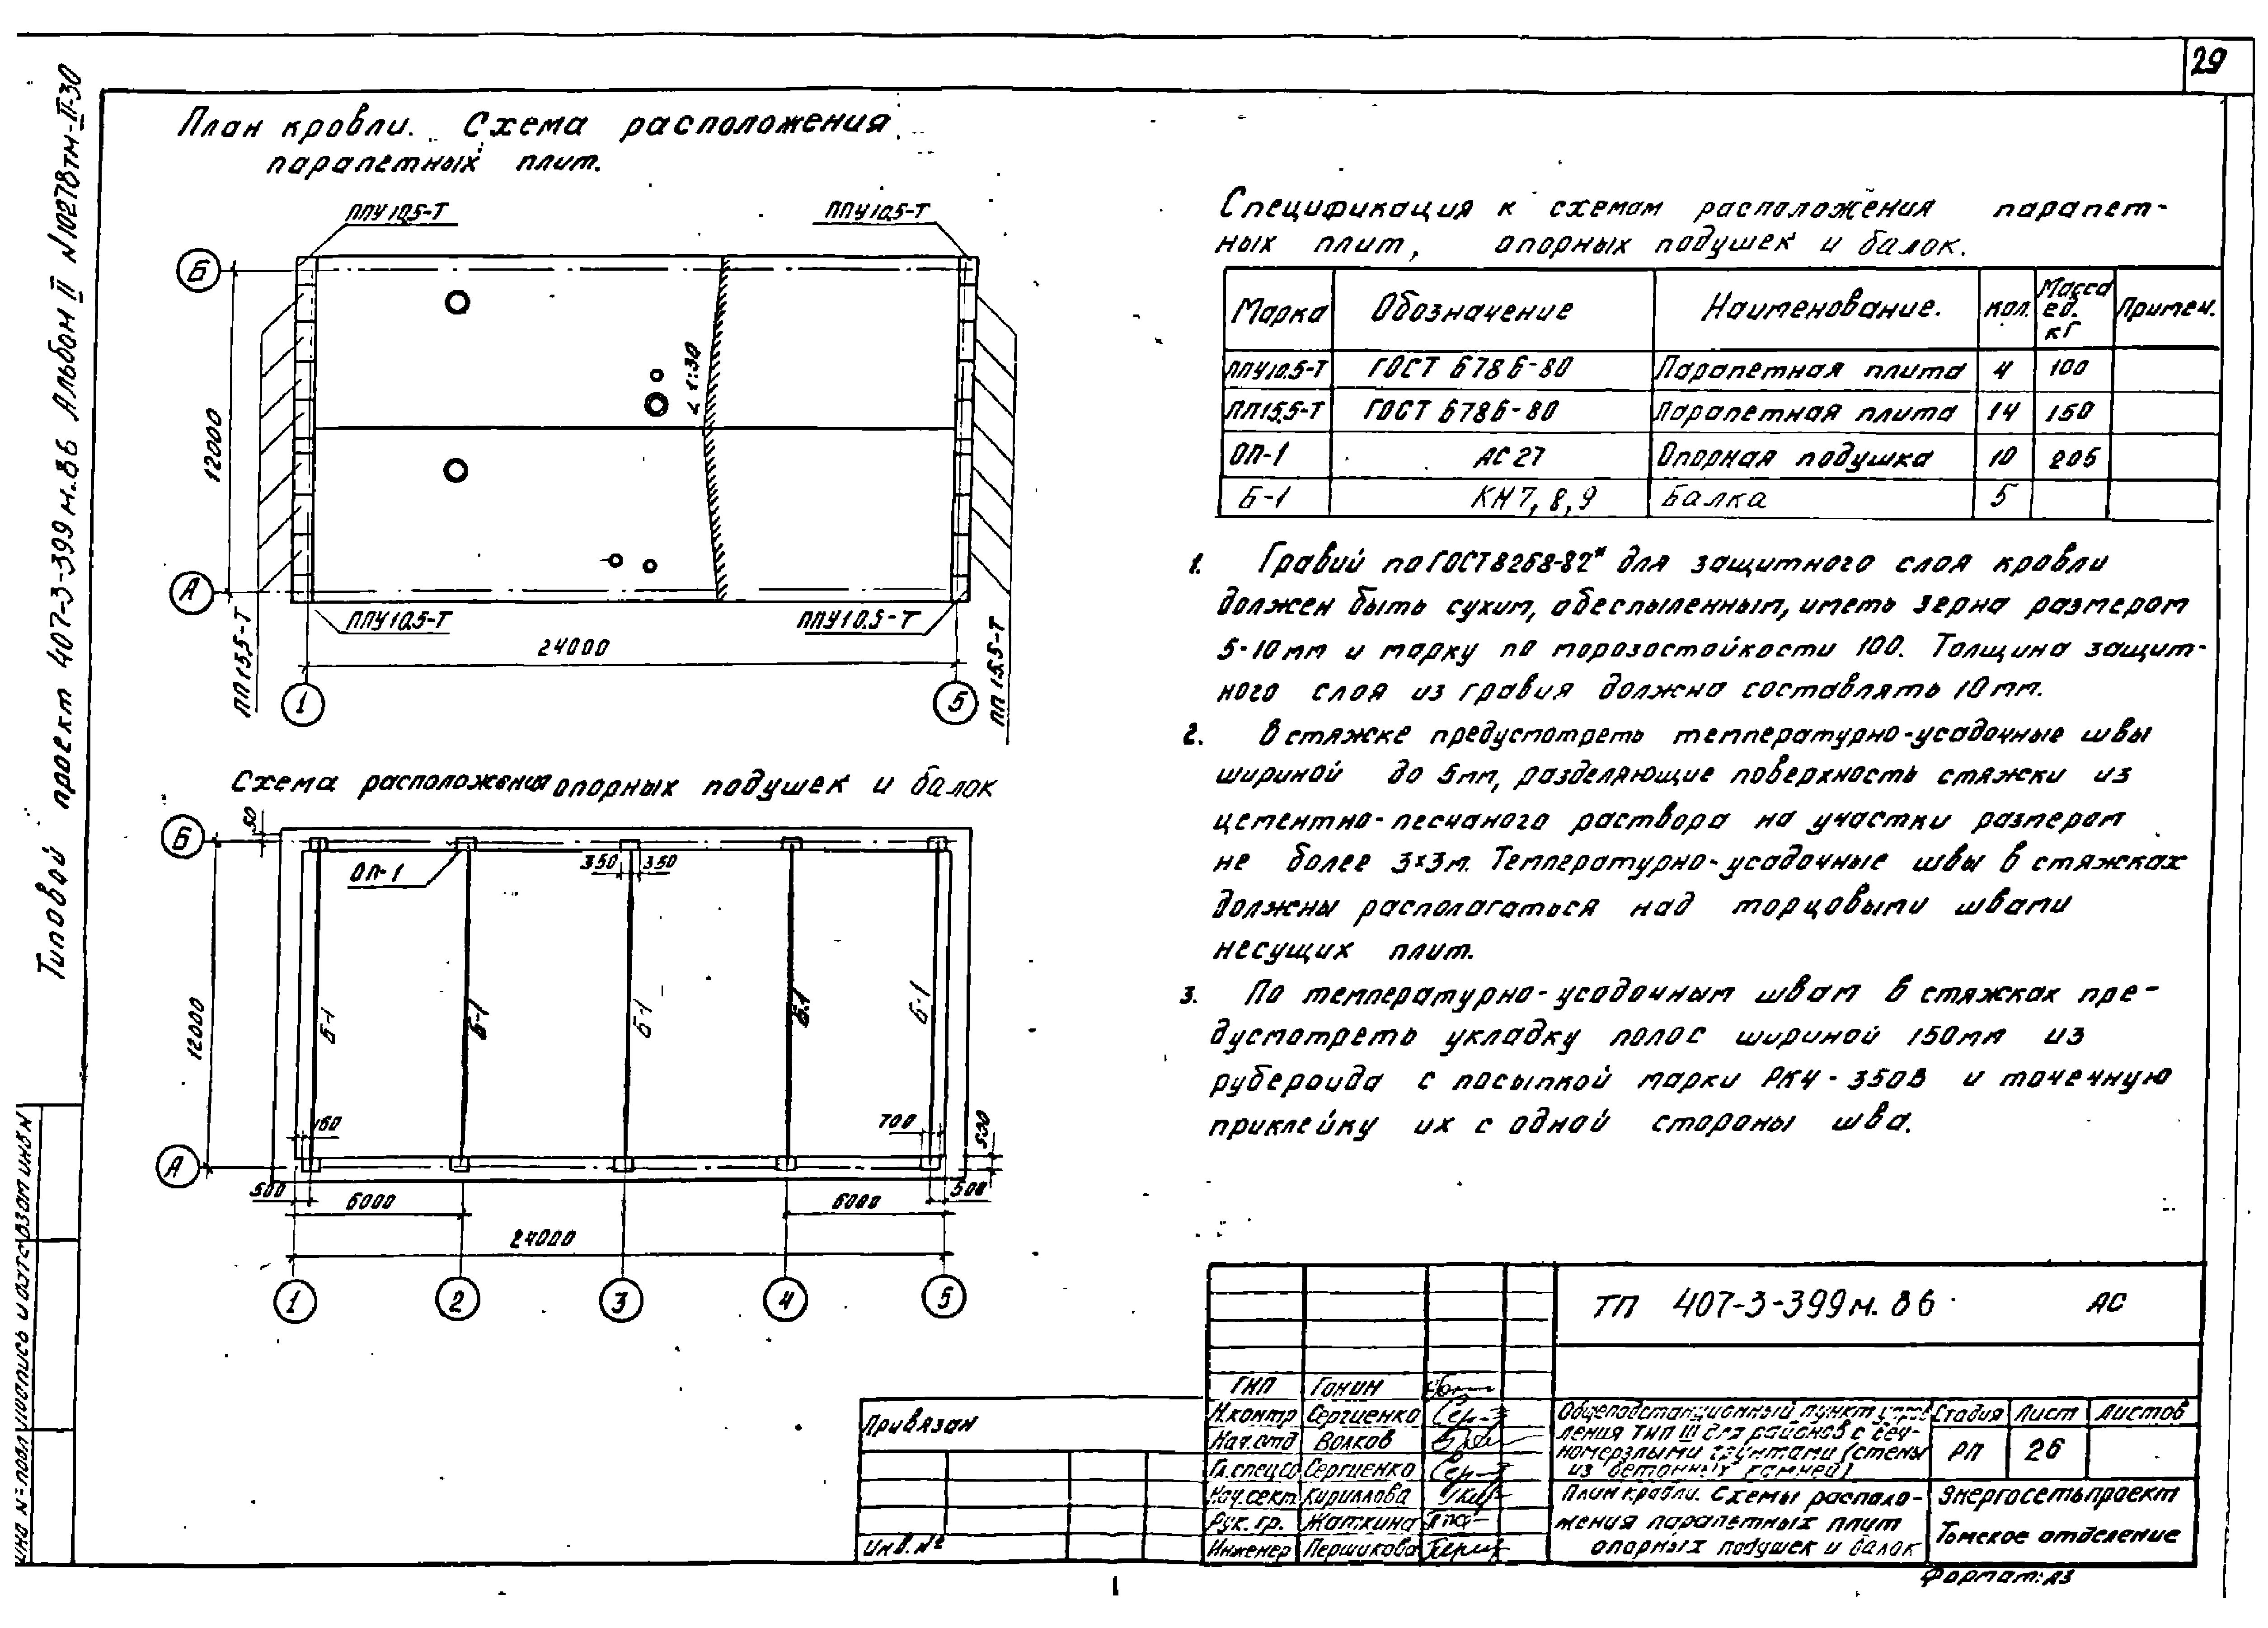 29
Типовой проект 407-3-399м.86 Альбом II N10278тм-II-30
План кровли. Схема расположения
парапетных плит.
ППУ10,5-Т
ППУ10,5-Т
Б
< 1:30
12000
А
ППУ10.5-Т
ППУ10.5-Т
24000
ПП15,5-Т
ПП15.5-Т
1
5
Схема расположения опорных подушек и балок
50
Б
ОП-1
350
350
12000
Б-1
Б-1
Б-1
Б-1
Б-1
160
700
500
А
500
500
6000
6000
24000
1
2
3
4
5
Спецификация к схемам расположения парапет-
ных плит, опорных подушек и балок.
Марка Обозначение Наименование. кол. Масса ед. кг Примеч.
ППУ10.5-Т ГОСТ 6786-80 Парапетная плита 4 100
ПП15,5-Т ГОСТ 6786-80 Парапетная плита 14 150
ОП-1 АС 27 Опорная подушка 10 205
Б-1 КН 7, 8, 9 Балка 5
1. Гравий по ГОСТ 8268-82* для защитного слоя кровли
должен быть сухим, обеспыленным, иметь зерна размером
5-10мм и марку по морозостойкости 100. Толщина защит-
ного слоя из гравия должна составлять 10мм.
2. В стяжке предусмотреть температурно-усадочные швы
шириной до 5мм, разделяющие поверхность стяжки из
цементно-песчаного раствора на участки размером
не более 3х3м. Температурно-усадочные швы в стяжках
должны располагаться над торцовыми швами
несущих плит.
3. По температурно-усадочным швам в стяжках пре-
дусмотреть укладку полос шириной 150мм из
рубероида с посыпкой марки РКЧ-350В и точечную
приклейку их с одной стороны шва.
ТП 407-3-399м.86 АС
ГИП Гонин
Н.контр Сергиенко
Нач.отд Волков
Гл.спецсо Сергиенко
Нач.сект Кириллова
Рук. гр. Жаткина
Инженер Першикова
Общеподстанционный пункт управ
ления тип III для районов с веч-
номерзлыми грунтами (стены
из бетонных камней)
Стадия Лист Листов
РП 26
План кровли. Схемы располо-
жения парапетных плит
опорных подушек и балок
Энергосетьпроект
Томское отделение
Привязан
Инв. №
Формат: А3